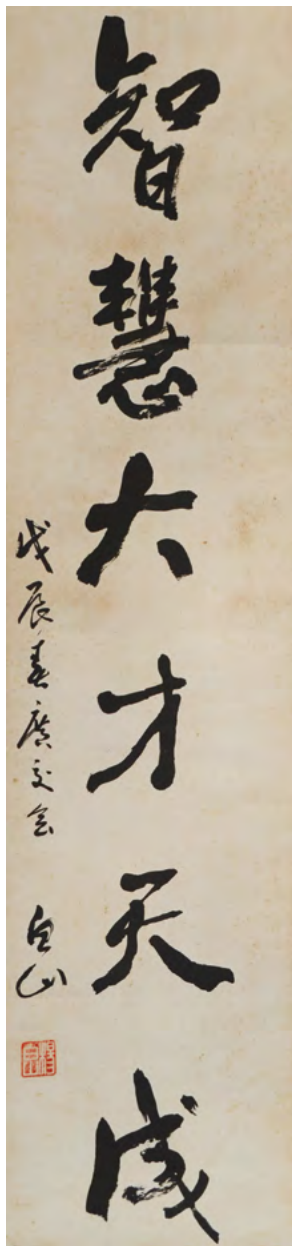 智慧大才天成
戊辰春廣交会 白山